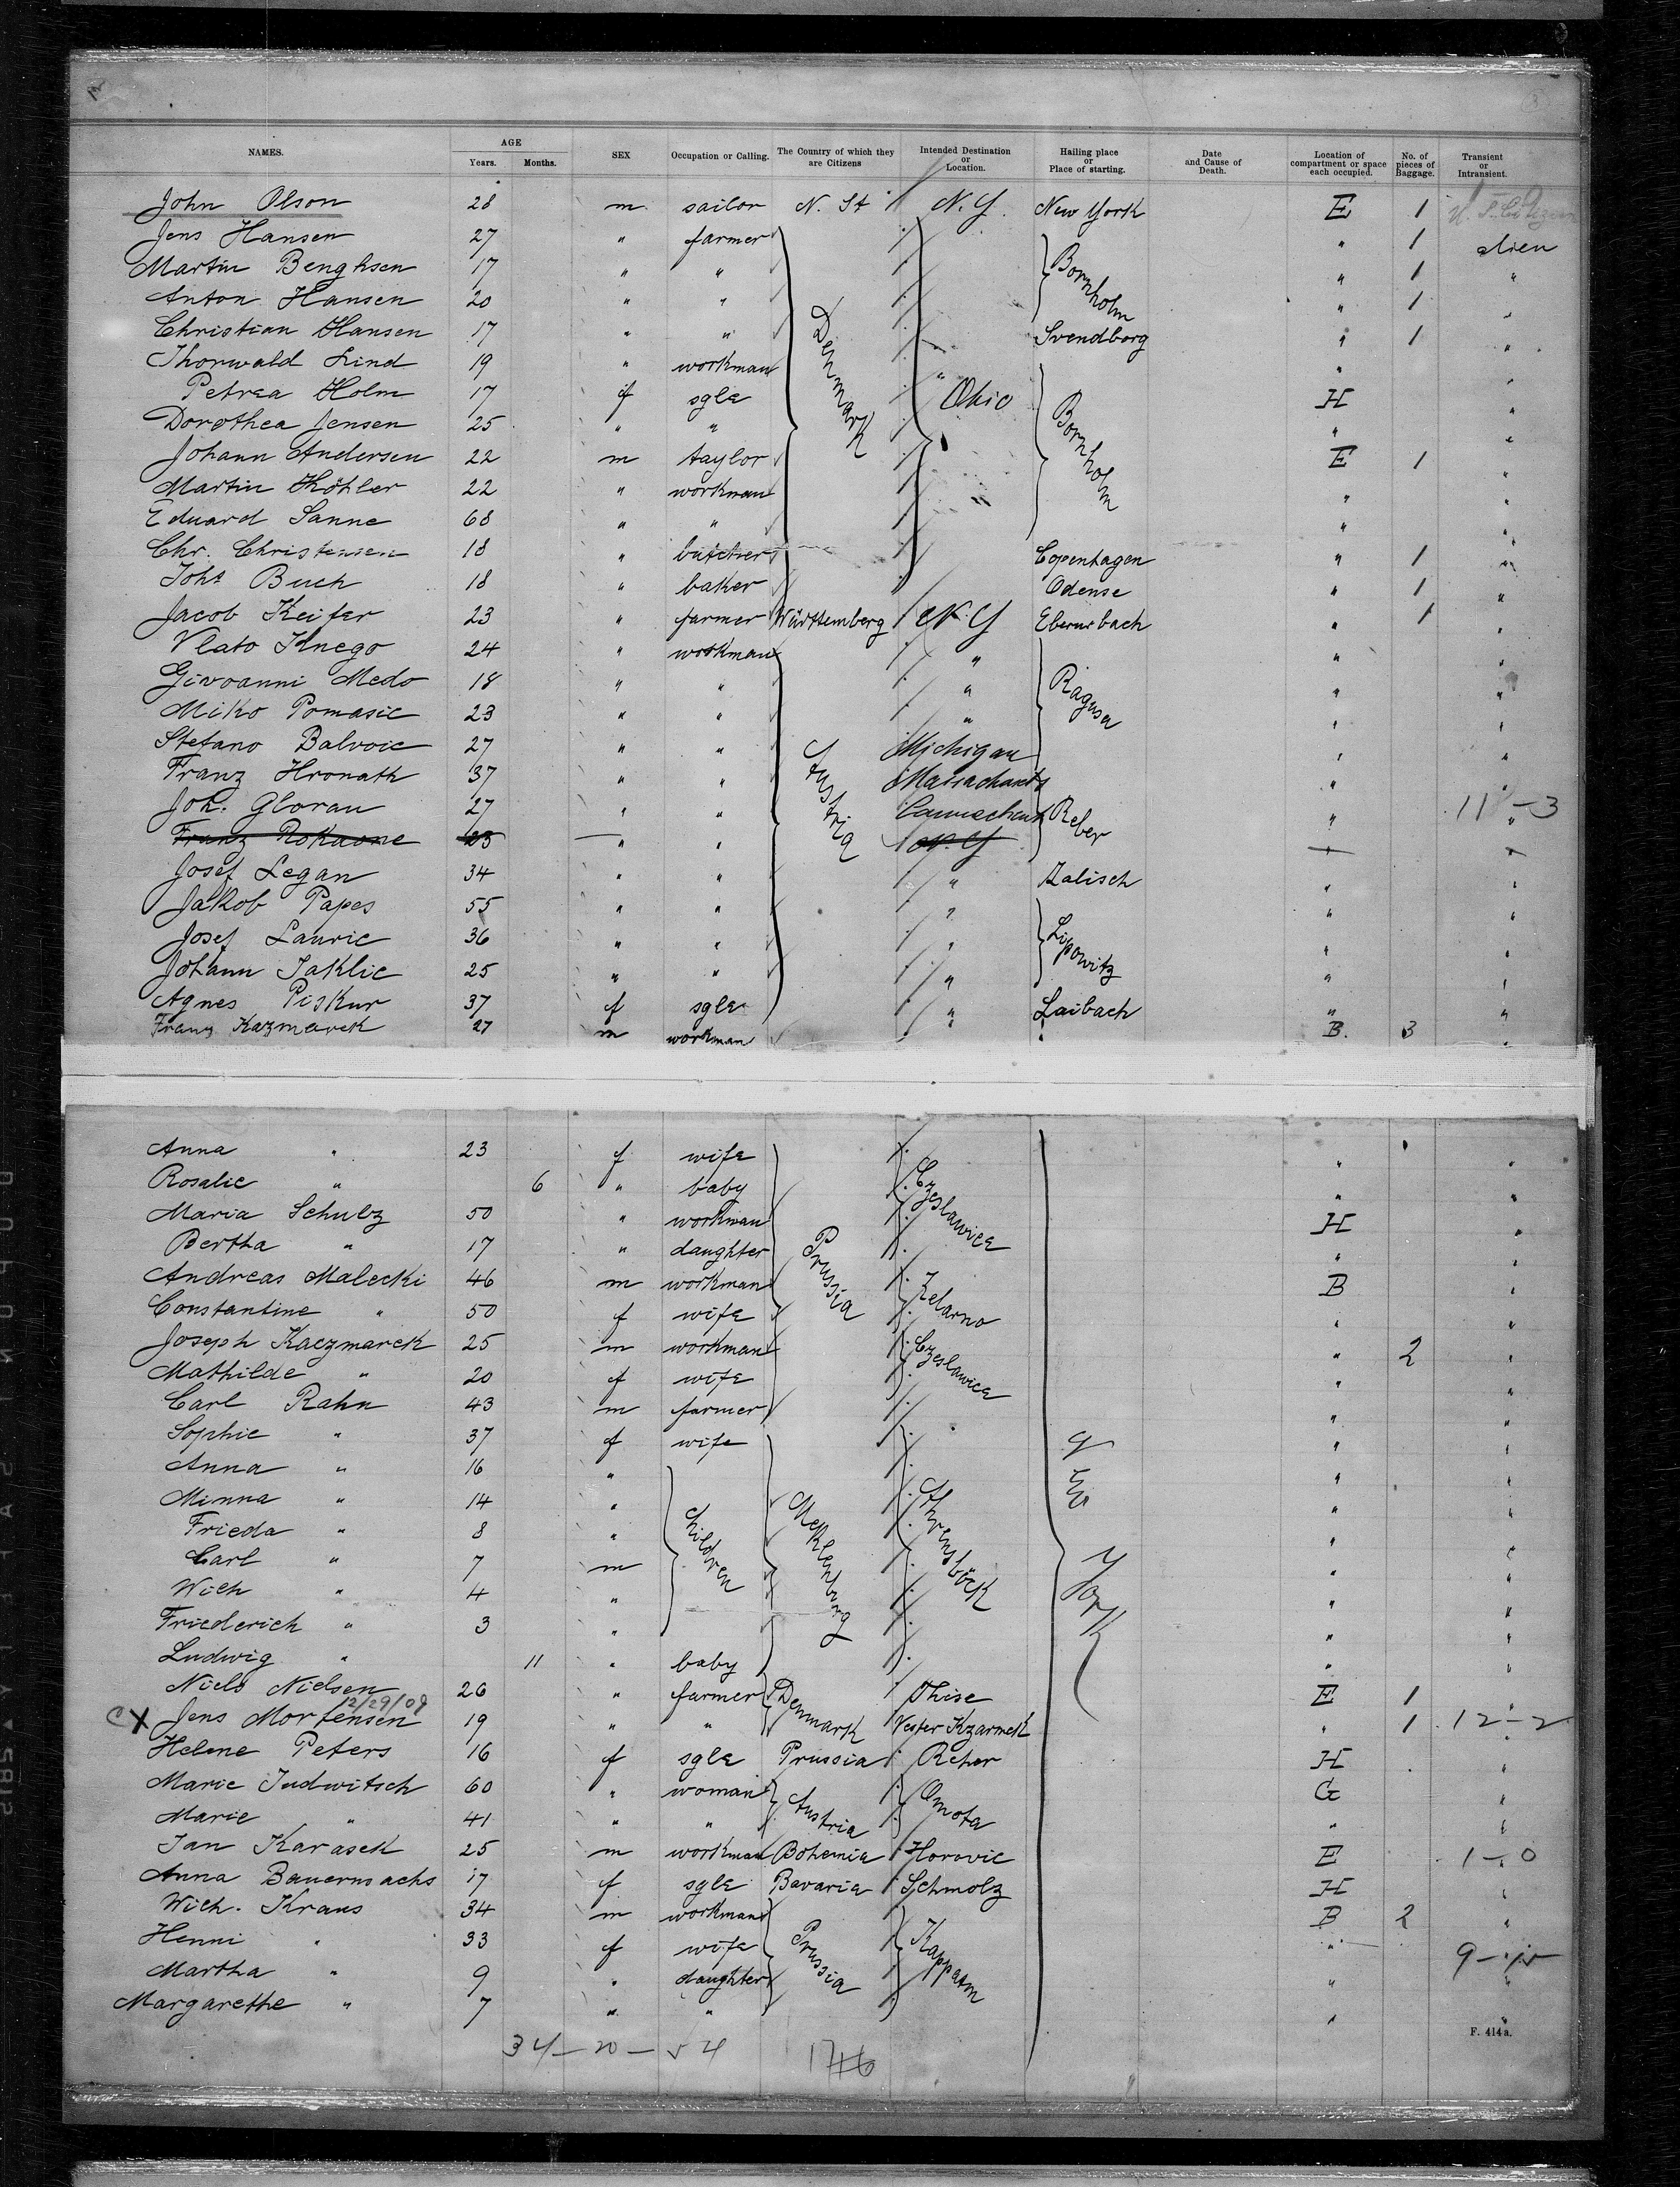 NAMES. AGE Years. Months. SEX Occupation or Calling. The Country of which they are Citizens Intended Destination or Location. Hailing place or Place of starting. Date and Cause of Death. Location of compartment or space each occupied. No. of pieces of Baggage. Transient or Intransient.
John Olson 28 m sailor N. St N.Y. New York E 1 U. S. Citizen
Jens Hansen 27 " farmer Denmark Ohio Bornholm " 1 alien
Martin Benghsen 17 " " " 1 "
Anton Hansen 20 " " " 1 "
Christian Hansen 17 " " Svendborg " 1 "
Thorwald Lind 19 " workman Bornholm " "
Petrea Holm 17 f sgle H "
Dorothea Jensen 25 " " " "
Johann Andersen 22 m taylor E 1 "
Martin Köhler 22 " workman " "
Eduard Sanne 68 " " " "
Chr. Christensen 18 " butcher Copenhagen " 1 "
Joh. Buch 18 " baker Odense " 1 "
Jacob Keifer 23 " farmer Württemberg N.Y Ebersbach " 1 "
Vlato Knego 24 " workman Austria " Ragusa " "
Givoanni Medo 18 " " " " "
Miko Pomasic 23 " " " " "
Stefano Balvoic 27 " " Michigan " "
Franz Hronath 37 " " " "
Joh. Gloran 27 " " Reber " 11 - 3
Franz Rokaone 23 " " N.Y
Josef Legan 34 " " " Zalisch " "
Jakob Papes 55 " " " Lipowitz " "
Josef Lauric 36 " " " " "
Johann Jaklic 25 " " " " "
Agnes Piskur 37 f sgle " Laibach " "
Franz Kazmarek 27 m workman " " B. 3 "
Anna " 23 f wife Prussia Czeslawice New York " "
Rosalie " 6 " baby " "
Maria Schulz 50 " workman H "
Bertha " 17 " daughter " "
Andreas Malecki 46 m workman Zelarno B "
Constantine " 50 f wife " "
Joseph Kaczmarek 25 m workman Czeslawice " 2 "
Mathilde " 20 f wife " "
Carl Rahn 43 m farmer Meklenburg Ahrensböck " "
Sophie " 37 f wife " "
Anna " 16 " children " "
Minna " 14 " " "
Frieda " 8 " " "
Carl " 7 m " "
Wilh " 4 " " "
Friederich " 3 " " "
Ludwig " 11 " baby " "
Niels Nielsen 26 " farmer Denmark Thise E 1 "
12/29/09
CX Jens Mortensen 19 " " " 1 12-2
Helene Peters 16 f sgle Prussia Reher H "
Marie Judwitsch 60 " woman Austria Omota G "
Marie " 41 " " " "
Jan Karasek 25 m workman Bohemia Horovic E 1-0
Anna Bauernsachs 17 f sgle Bavaria Schmolz H "
Wilh. Kraus 34 m workman Prussia B 2 "
Henni " 33 f wife "
Martha " 9 " daughter " "
Margarethe " 7 " " " "
F. 414a.
34-20-54